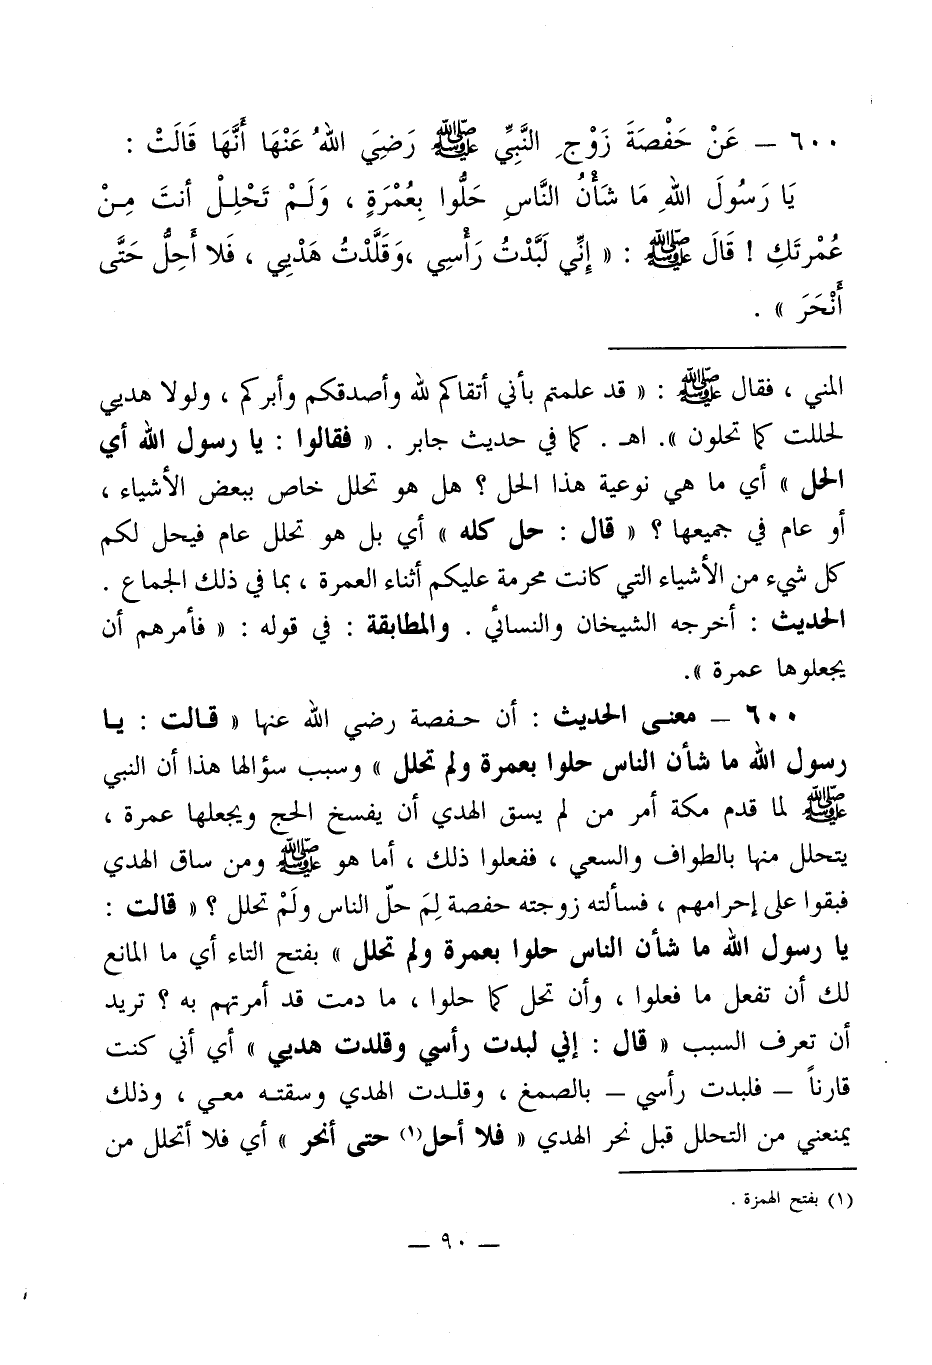 ٦٠٠ – عَنْ حَفْصَةَ زَوْجِ النَّبِيِّ ﷺ رَضِيَ اللهُ عَنْهَا أَنَّهَا قَالَتْ :
يَا رَسُولَ اللهِ مَا شَأْنُ النَّاسِ حَلُّوا بِعُمْرَةٍ ، وَلَمْ تَحْلِلْ أنتَ مِنْ
عُمْرتَكِ ! قَالَ ﷺ : « إِنِّي لَبَّدْتُ رَأْسِي ،وَقَلَّدْتُ هَدْيِي ، فَلا أَحِلُّ حَتَّى
أَنْحَرَ » .
المني ، فقال ﷺ : « قد علمتم بأني أتقاكم لله وأصدقكم وأبركم ، ولولا هديي
لحللت كما تحلون ». اهـ . كما في حديث جابر . « فقالوا : يا رسول الله أي
الحل » أي ما هي نوعية هذا الحل ؟ هل هو تحلل خاص ببعض الأشياء ،
أو عام في جميعها ؟ « قال : حل كله » أي بل هو تحلل عام فيحل لكم
كل شيء من الأشياء التي كانت محرمة عليكم أثناء العمرة ، بما في ذلك الجماع .
الحديث : أخرجه الشيخان والنسائي . والمطابقة : في قوله : « فأمرهم أن
يجعلوها عمرة ».
٦٠٠ – معنى الحديث : أن حفصة رضي الله عنها « قالت : يا
رسول الله ما شأن الناس حلوا بعمرة ولم تحلل » وسبب سؤالها هذا أن النبي
ﷺ لما قدم مكة أمر من لم يسق الهدي أن يفسخ الحج ويجعلها عمرة ،
يتحلل منها بالطواف والسعي ، ففعلوا ذلك ، أما هو ﷺ ومن ساق الهدي
فبقوا على إحرامهم ، فسألته زوجته حفصة لِمَ حلّ الناس ولَمْ تحلل ؟ « قالت :
يا رسول الله ما شأن الناس حلوا بعمرة ولم تحلل » بفتح التاء أي ما المانع
لك أن تفعل ما فعلوا ، وأن تحل كما حلوا ، ما دمت قد أمرتهم به ؟ تريد
أن تعرف السبب « قال : إني لبدت رأسي وقلدت هديي » أي أني كنت
قارناً – فلبدت رأسي – بالصمغ ، وقلدت الهدي وسقته معي ، وذلك
يمنعني من التحلل قبل نحر الهدي « فلا أحل(١) حتى أنحر » أي فلا أتحلل من
(١) بفتح الهمزة .
– ٩٠ –